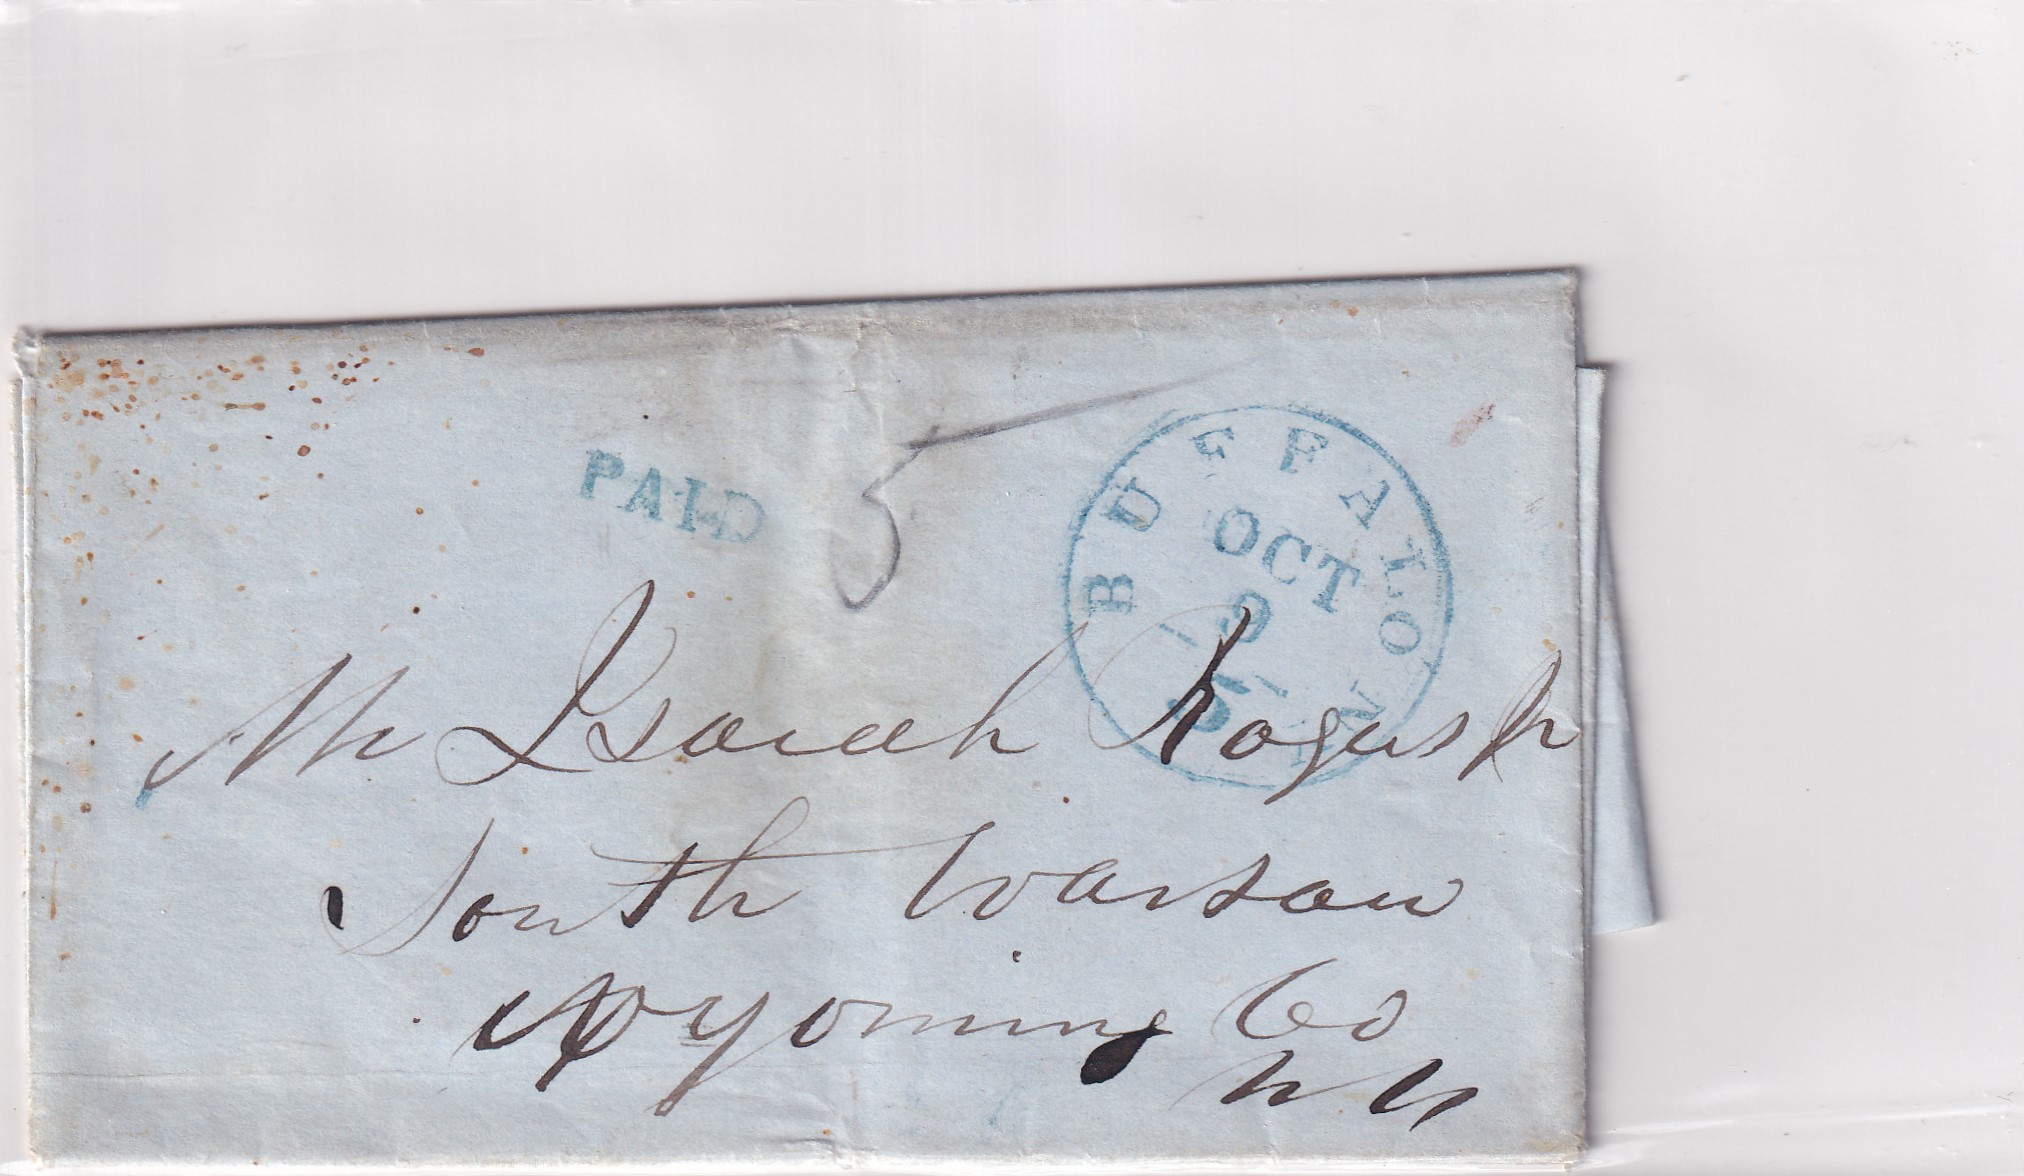 PAID 5
BUFFALO N.Y.
OCT
9
5
Mr Isaiah Rogers Jr
South Warsaw
Wyoming Co
NY